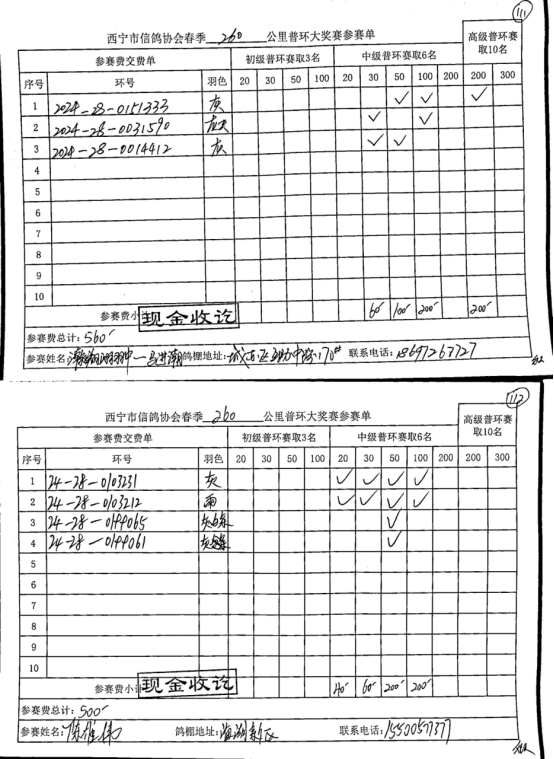 111
西宁市信鸽协会春季 260 公里普环大奖赛参赛单
高级普环赛取10名
参赛费交费单 初级普环赛取3名 中级普环赛取6名
序号 环号 羽色 20 30 50 100 20 30 50 100 200 200 300
1 2024-28-0151333 灰 ✓ ✓ ✓
2 2024-28-0031590 ✓ ✓
3 2024-28-0014412 灰 ✓ ✓
4
5
6
7
8
9
10
参赛费小 现金收讫 60 100 200 200
参赛费总计: 560
参赛姓名: 鸽棚地址: 联系电话: 18697267727
112
西宁市信鸽协会春季 260 公里普环大奖赛参赛单
高级普环赛取10名
参赛费交费单 初级普环赛取3名 中级普环赛取6名
序号 环号 羽色 20 30 50 100 20 30 50 100 200 200 300
1 24-28-0103231 灰 ✓ ✓ ✓ ✓
2 24-28-0103212 雨 ✓ ✓ ✓ ✓
3 24-28-0199065 ✓
4 24-28-0199061 ✓
5
6
7
8
9
10
参赛费小 现金收讫 40 60 200 200
参赛费总计: 500
参赛姓名: 陈 伟 鸽棚地址: 海湖新区 联系电话: 15500577377